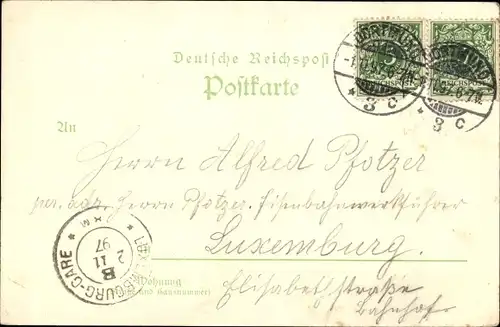 DORTMUND
DORTMUND
Deutsche Reichspost
Postkarte
* 3 C
* 3 C
An
Herrn Alfred Pfotzer
per. adr. Herrn Pfotzer, Eisenbahnwerkführer
Luxemburg.
LUXEMBOURG-GARE
2 11
97
B
(Wohnung
und Hausnummer)
Elisabethstraße
Bahnhof